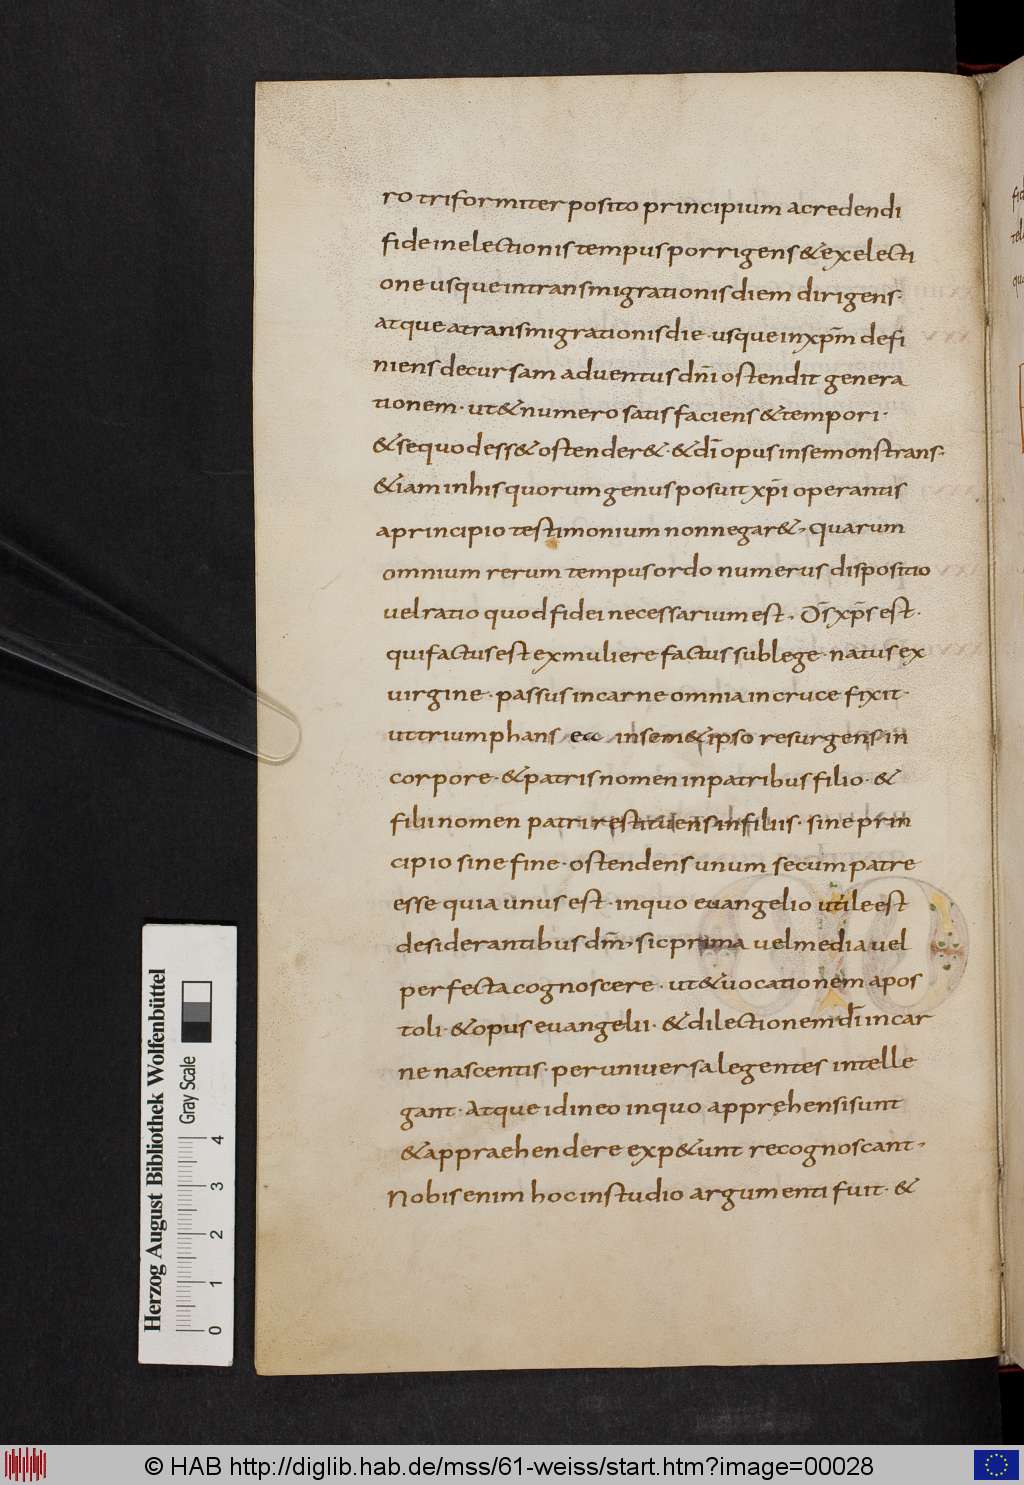 ro triformiter posito principium a credendi
fide in electionis tempus porrigens & ex electi
one usque in transmigrationis diem dirigens·
atque a transmigrationis die· usque in xp̄m defi
niens decursam adventus dn̄i ostendit genera
tionem· ut & numero satisfaciens & tempori·
& se quod ess& ostender&· & dī opus in se monstrans·
& iam in his quorum genus posuit xp̄i operantis
a principio testimonium non negar&· quarum
omnium rerum tempus ordo numerus dispositio
vel ratio quod fidei necessarium est· Ds̄ xp̄s est·
qui factus est ex muliere factus sub lege· natus ex
virgine· passus in carne omnia in cruce fixit·
ut triumphans ea in sem&ipso resurgens in
corpore· & patris nomen in patribus filio· &
filii nomen patri restituens in filiis· sine prin
cipio sine fine· ostendens unum se cum patre
esse quia unus est· in quo evangelio utile est
desiderantibus dm̄· sic prima vel media vel
perfecta cognoscere· ut & vocationem apos
toli· & opus evangelii· & dilectionem dī in car
ne nascentis· per universa legentes intelle
gant· Atque id in eo in quo apprehensi sunt
& appraehendere exp&unt recognoscant·
Nobis enim hoc in studio argumenti fuit· &
Herzog August Bibliothek Wolfenbüttel
Gray Scale
0 1 2 3 4
© HAB http://diglib.hab.de/mss/61-weiss/start.htm?image=00028